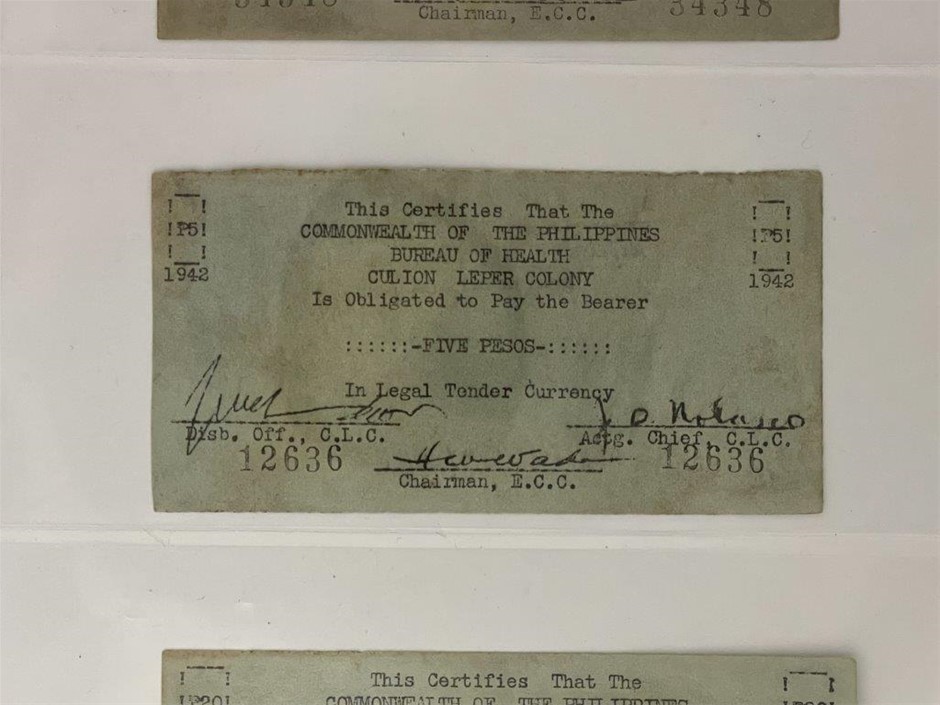 Chairman, E.C.C.
34348
This Certifies That The
COMMONWEALTH OF THE PHILIPPINES
BUREAU OF HEALTH
CULION LEPER COLONY
Is Obligated to Pay the Bearer
!P5! !P5!
1942 1942
::::::-FIVE PESOS-::::::
In Legal Tender Currency
Disb. Off., C.L.C. Actg. Chief, C.L.C.
12636 12636
Chairman, E.C.C.
This Certifies That The
COMMONWEALTH OF THE PHILIPPINES